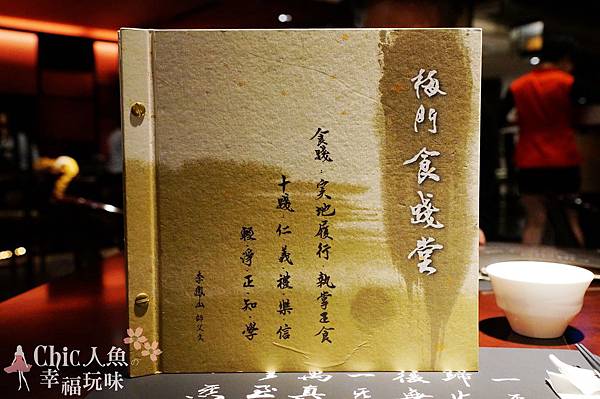 梅門食踐堂
食踐：实地履行 执掌正食
十踐 仁 義 禮 樂 信
輕·淨·正·知·學
李鳳山 師父文
Chic人魚
幸福玩味